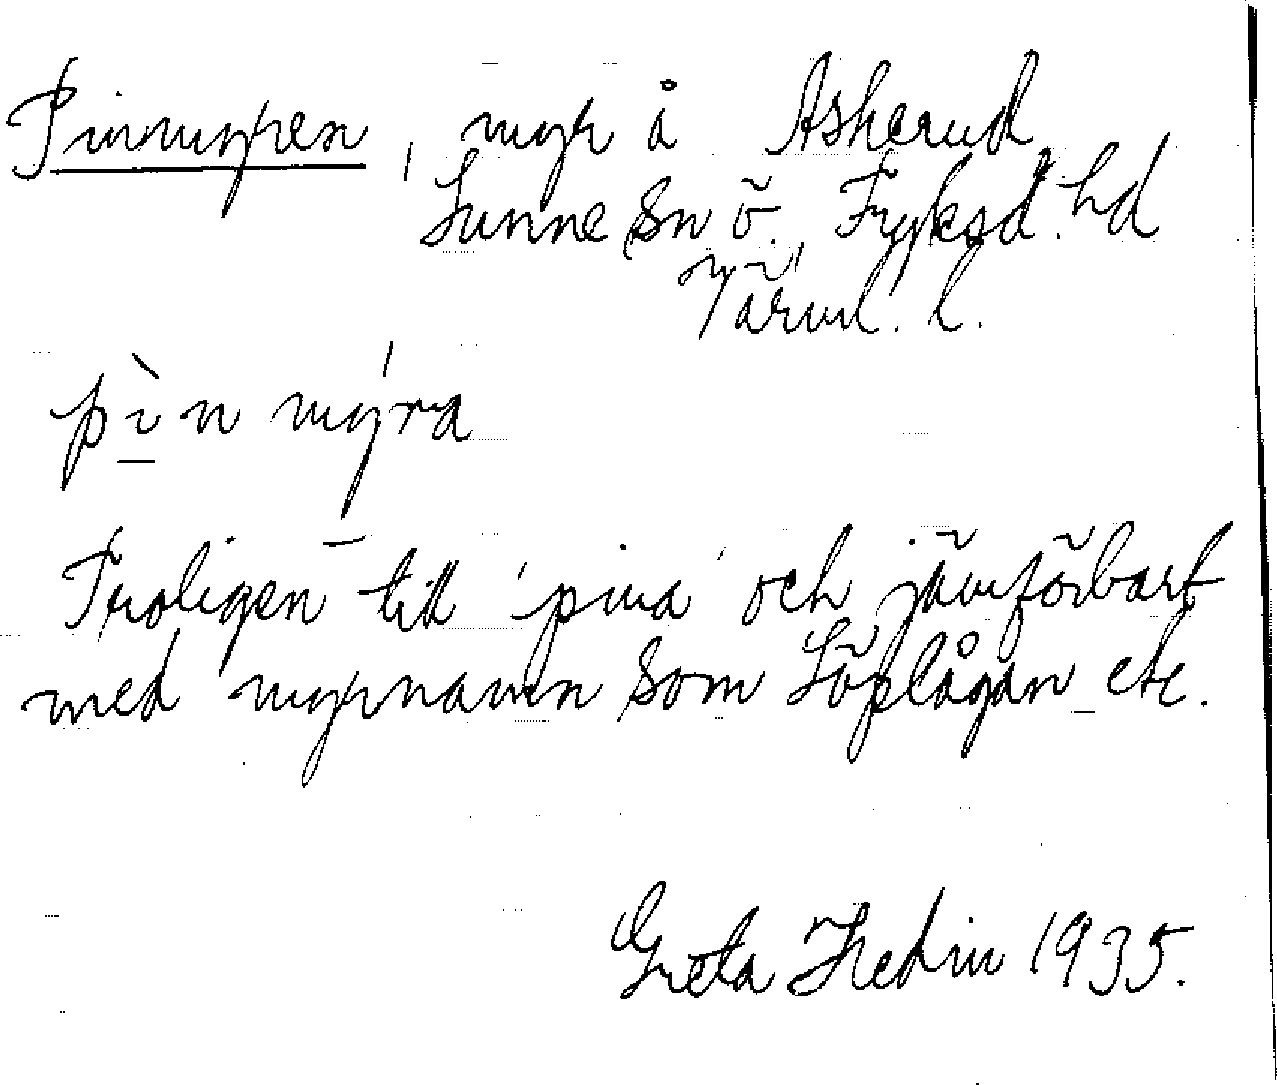 Pinmyren, myr å Askerud
Sunne sn ö., Fryksd. hd
Värml. l.
pìn mýra
Troligen till 'pina' och jämförbart
med myrnamn som Löplågan etc.
Greta Hedin 1935.